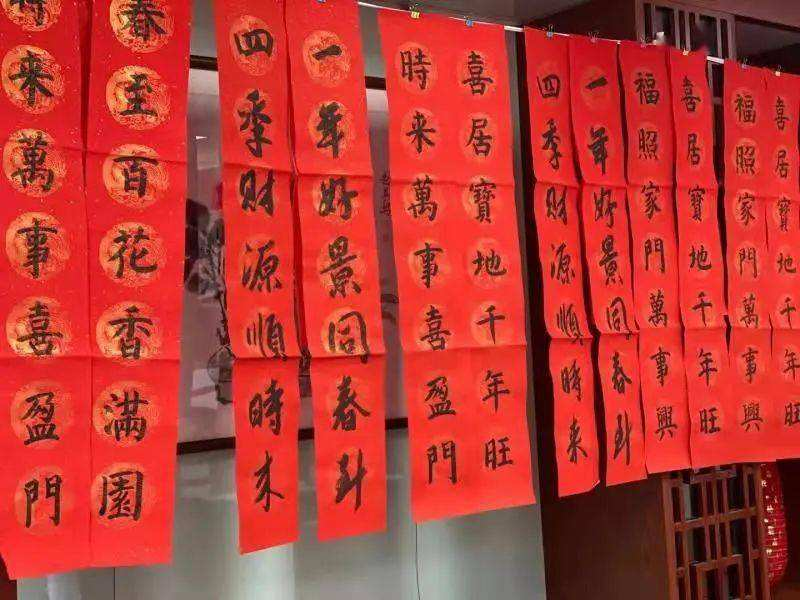 喜居寶地千年旺
福照家門萬事興
喜居寶地千年旺
福照家門萬事興
一年好景同春到
四季財源順時來
喜居寶地千年旺
時來萬事喜盈門
一年好景同春到
四季財源順時來
春至百花香滿園
來萬事喜盈門